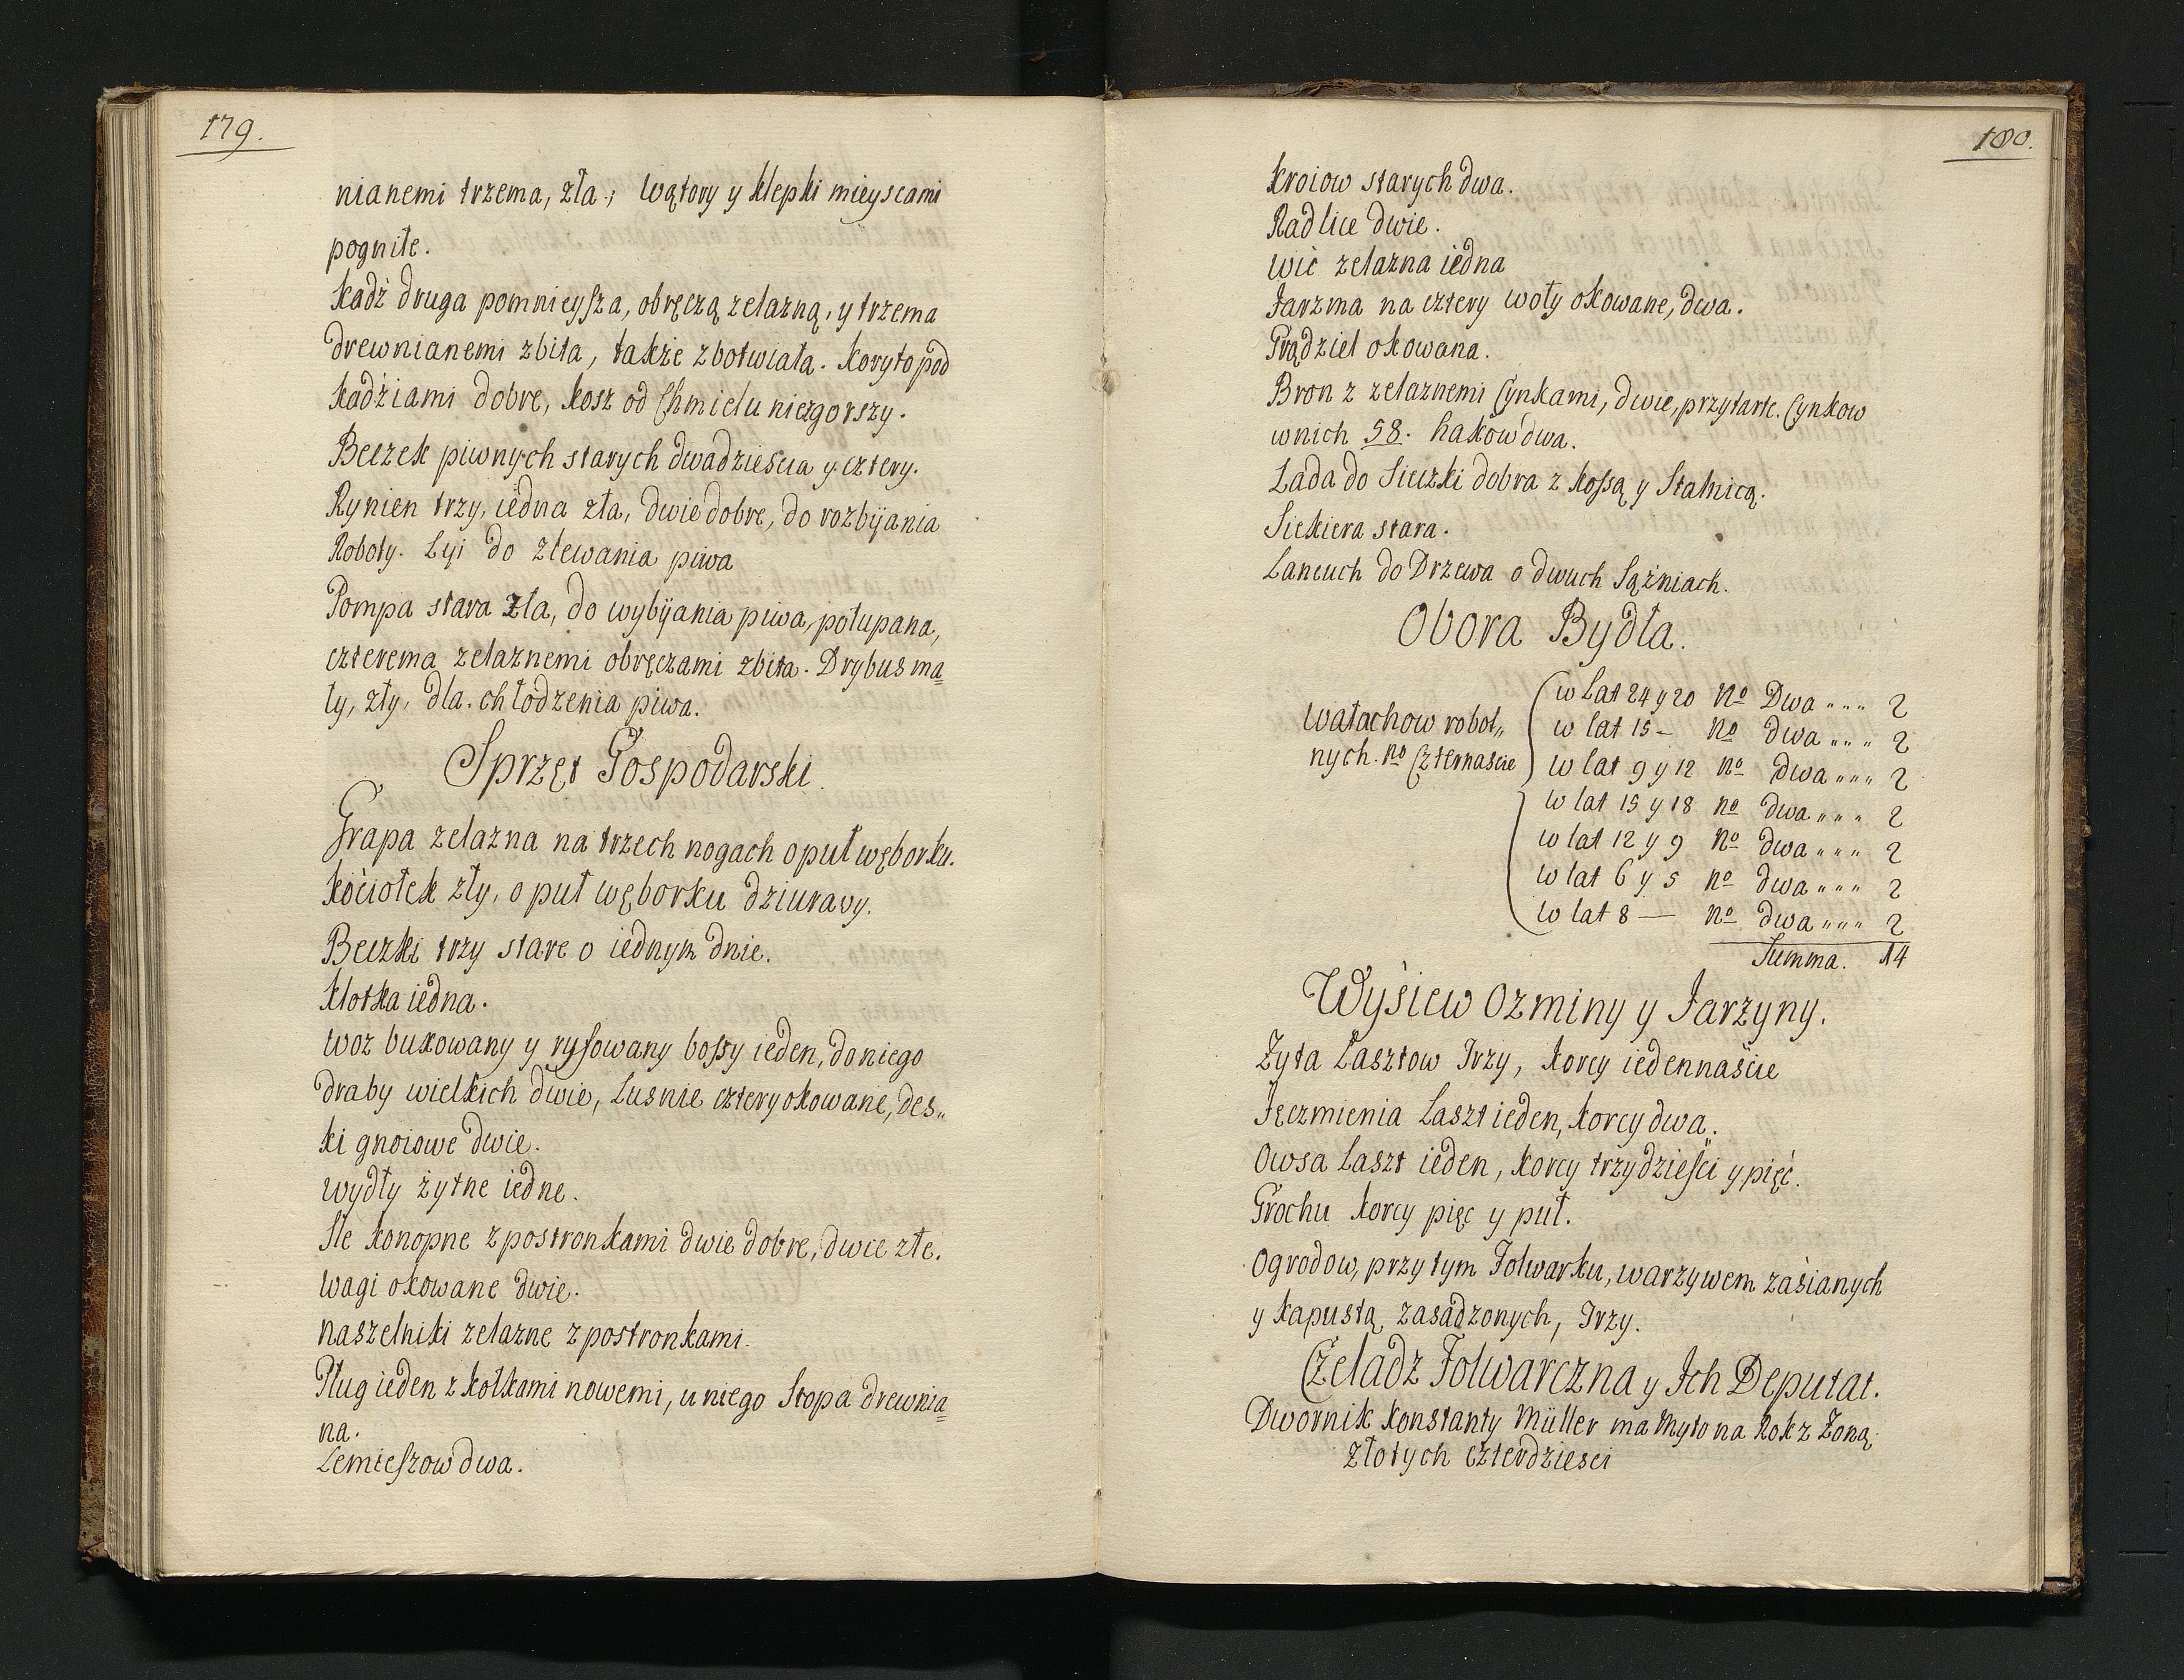 179.
nianemi trzema, zła; Wątory y klepki mieyscami
pogniłe.
Kadź druga pomnieysza, obręczą zelazną, y trzema
drewnianemi zbita, także zbotwiała. Koryto pod
kadźiami dobre, kosz od Chmielu niezgorszy.
Beczek piwnych starych dwadzieścia y cztery.
Rynien trzy, iedna zła, dwie dobre, do rozbijania
Roboty. Lyi do zlewania piwa
Pompa stara zła, do wybijania piwa, połupana,
czterema zelaznemi obręczami zbita. Drybus ma=
ły, zły, dla chłodzenia piwa.
Sprzęt Gospodarski.
Grapa zelazna na trzech nogach o puł węborku.
Kociołek zły, o puł węborku dziurawy.
Beczki trzy stare o iednym dnie.
Klotka iedna.
Woz buxowany y rysowany bossy ieden, do niego
draby wielkich dwie, Lusnie cztery okowane, des„
ki gnoiowe dwie.
wydły żytne iedne.
Sle konopne z postronkami dwie dobre, dwie złe.
Wagi okowane dwie.
naszelniki zelazne z postronkami.
Pług ieden z kołkami nowemi, u niego Stopa drewnia=
na.
Lemieszow dwa.
180.
Kroiow starych dwa.
Radlice dwie.
Wić zelazna iedna
Jarzma na cztery woły okowane, dwa.
Grądziel okowana.
Bron z zelaznemi Cynkami, dwie, przytarte. Cynkow
wnich 58. hakow dwa.
Lada do Sieczki dobra z kossą y Stalnicą.
Siekiera stara.
Lancuch do Drzewa o dwuch Sążniach.
Obora Bydła.
Wałachow robot„
nych. No Czternaście
w Lat 24 y 20 No Dwa „ „ „ 2
w lat 15 – No dwa „ „ „ 2
w lat 9 y 12 No dwa „ „ „ 2
w lat 15 y 18 no dwa „ „ „ 2
w lat 12 y 9 No dwa „ „ „ 2
w lat 6 y 5 no dwa „ „ „ 2
w lat 8 — no dwa „ „ „ 2
Summa. 14
Wyśiew Ozminy y Jarzyny.
Zyta Łasztow Trzy, korcy iedennaście
Jęczmienia Laszt ieden, korcy dwa.
Owsa Laszt ieden, korcy trzydzieści y pięć.
Grochu korcy pięc y puł.
Ogrodow, przy tym Folwarku, warzywem zaśianych
y kapustą zasadzonych, Trzy.
Czeladz Folwarczna y Ich Deputat.
Dwornik Konstanty Müller ma Myto na Rok z Żoną
złotych czterdziesci